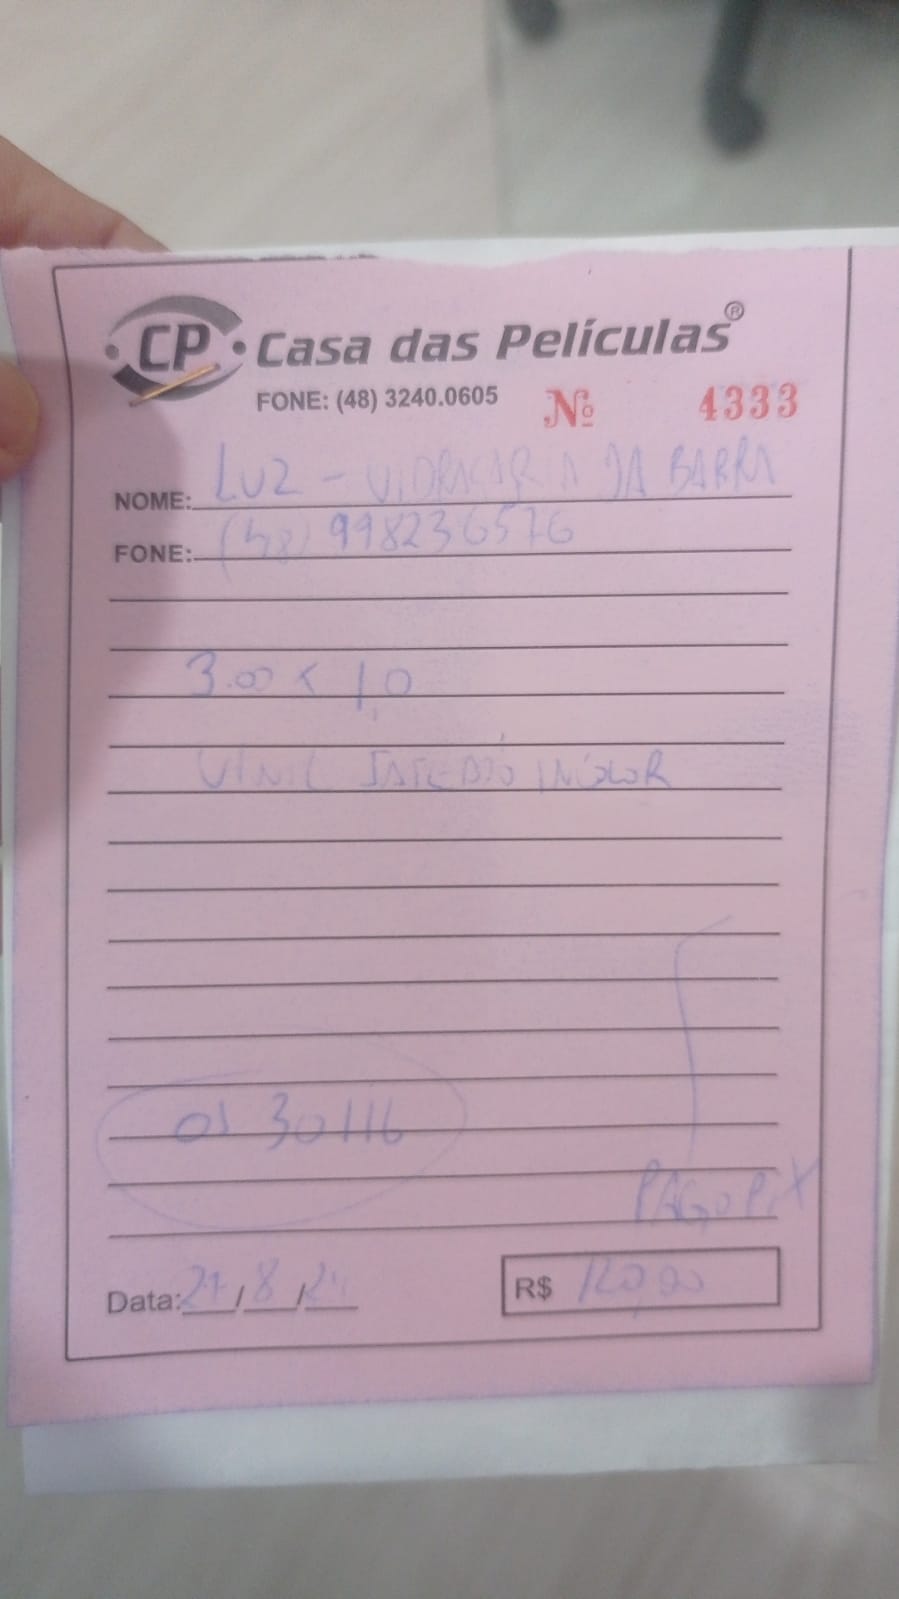 CP Casa das Películas®
FONE: (48) 3240.0605 Nº 4333
NOME: LUZ - VIDRAÇARIA DA BARRA
FONE: (48) 998236576
3.00 x 1,0
VINIL JATEADO INCOLOR
OS 30116
PAGO PIX
Data: 27/8/24 R$ 120,00